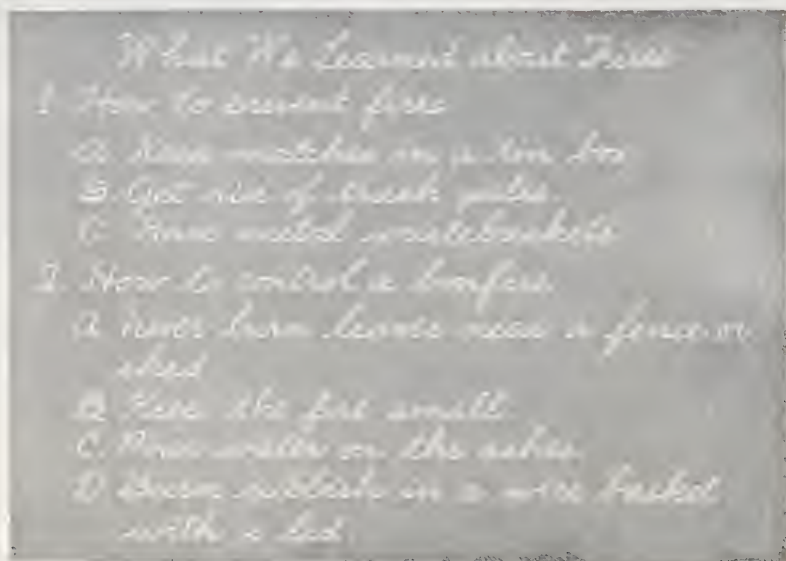 What We Learned about Fires
1. How to prevent fires
A. Keep matches in a tin box.
B. Get rid of trash piles.
C. Have metal wastebaskets.
2. How to control a bonfire
A. Never burn leaves near a fence or
shed.
B. Keep the fire small.
C. Pour water on the ashes.
D. Burn rubbish in a wire basket
with a lid.